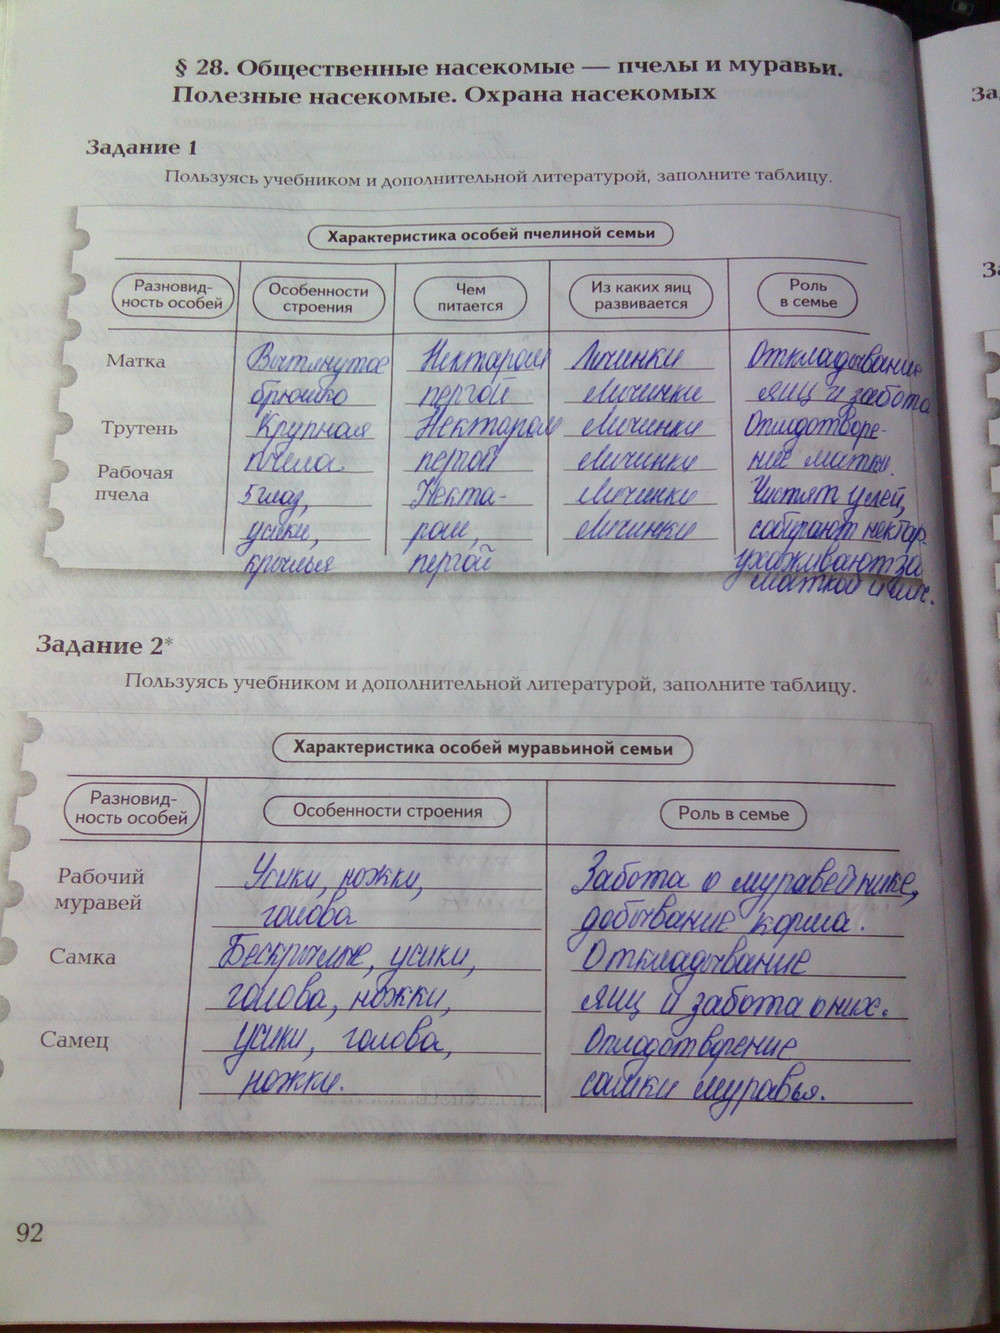 § 28. Общественные насекомые — пчелы и муравьи.
Полезные насекомые. Охрана насекомых
Задание 1
Пользуясь учебником и дополнительной литературой, заполните таблицу.
Характеристика особей пчелиной семьи
Разновид-
ность особей
Особенности
строения
Чем
питается
Из каких яиц
развивается
Роль
в семье
Матка
Вытянутое
брюшко
Нектаром
пергой
Личинки
Личинки
Откладывание
яиц и забота
Трутень
Крупная
пчела
Нектаром
пергой
Личинки
Личинки
Оплодотворе-
ние матки.
Рабочая
пчела
5 глаз,
усики,
крылья
Некта-
ром,
пергой
Личинки
Личинки
Чистят улей,
собирают нектар,
ухаживают за
маткой и
Задание 2*
Пользуясь учебником и дополнительной литературой, заполните таблицу.
Характеристика особей муравьиной семьи
Разновид-
ность особей
Особенности строения
Роль в семье
Рабочий
муравей
Усики, ножки,
голова
Забота о муравейнике,
добывание корма.
Самка
Бескрылые, усики,
голова, ножки,
Откладывание
яиц и забота о них.
Самец
усики, голова,
ножки.
Оплодотворение
самки муравья.
92
За
За